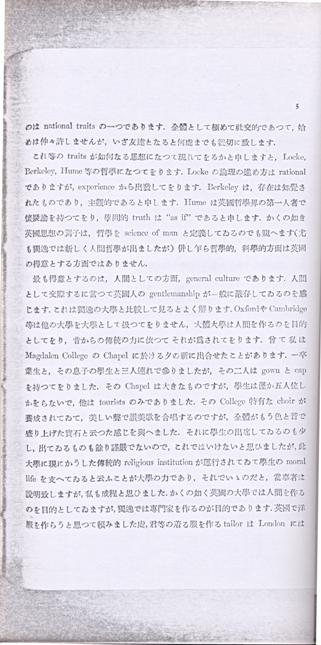 5
のは national traits の一つであります。全體として極めて社交的であつて、始
めは仲々許しませんが、いざ友達となると何處までも親切に致します。
これ等の traits が如何なる思想になつて現れてをるかと申しますと、Locke,
Berkeley, Hume 等の哲學になつてをります。Locke の論理の進め方は rational
でありますが、experience から出發してをります。Berkeley は、存在は知覺さ
れたものであり、主觀的であると申します。Hume は英國哲學界の第一人者で
懷疑論を持つてをり、 truth は "as if" であると申します。かくの如き
英國思想の調子は、哲學を science of man と定義してゐるのでも窺へます(尤
も獨逸では新しく人間哲學が出ましたが) 併し乍ら哲學的、科學的方面は英國
の得意とする方面ではありません。
最も得意とするのは、人間としての方面、general culture であります。人間
として交際するに當つて英國人の gentlemanship が一般に嚴存してをるのを感
じます。これは獨逸の大學と比較して見るとよく解ります。Oxford や Cambridge
等は他の大學を大學として扱つてをりません。大體大學は人間を作るのを目的
としてをり、昔からの傳統の力に依つてそれが爲されてをります。曾て私は
Magdalen College の Chapel に於ける夕の祈に出會せたことがあります。一卒
業生と、その息子の學生と三人連れで參りましたが、その二人は gown と cap
を持つてをりました。その Chapel は大きなものですが、學生は僅か五人位し
かをらないで、他は tourists のみでありました。その College 特有な choir が
養成されてゐて、美しい聲で讃美歌を合唱するのですが、全體がもう色と音で
盛り上げた寶石と云つた感じを與へました。それに學生の出席してゐるのも少
し、出てゐるものも餘り謹嚴でないので、これではいけないと思ひましたが、此
大學に現にかうした傳統的 religious institution が運行されてゐて學生の moral
life を支へてゐると云ふことが大學の力であり、それでいゝのだと、當事者は
說明致しますが、私も成程と思ひました。かくの如く英國の大學では人間を作る
のを目的としてゐますが、獨逸では專門家を作るのが目的であります。英國で洋
服を作らうと思つて賴みました處、君等の着る服を作る tailor は London には